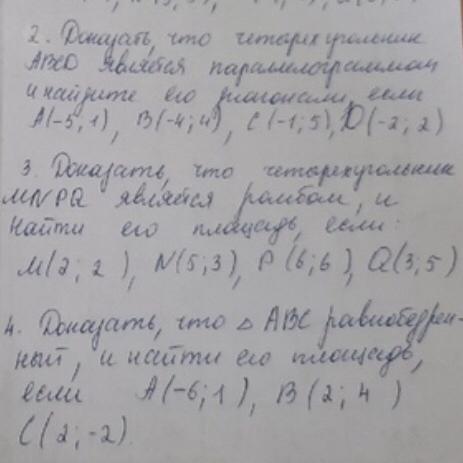 2. Доказать, что четырехугольник
ABCD является параллелограммом
и найдите его диагонали, если
A(-5; 1), B(-4; 4), C(-1; 5), D(-2; 2)
3. Доказать, что четырехугольник
MNPQ является ромбом, и
найти его площадь, если:
M(2; 2), N(5; 3), P(6; 6), Q(3; 5)
4. Доказать, что △ ABC равнобедрен-
ный, и найти его площадь,
если A(-6; 1), B(2; 4)
C(2; -2).